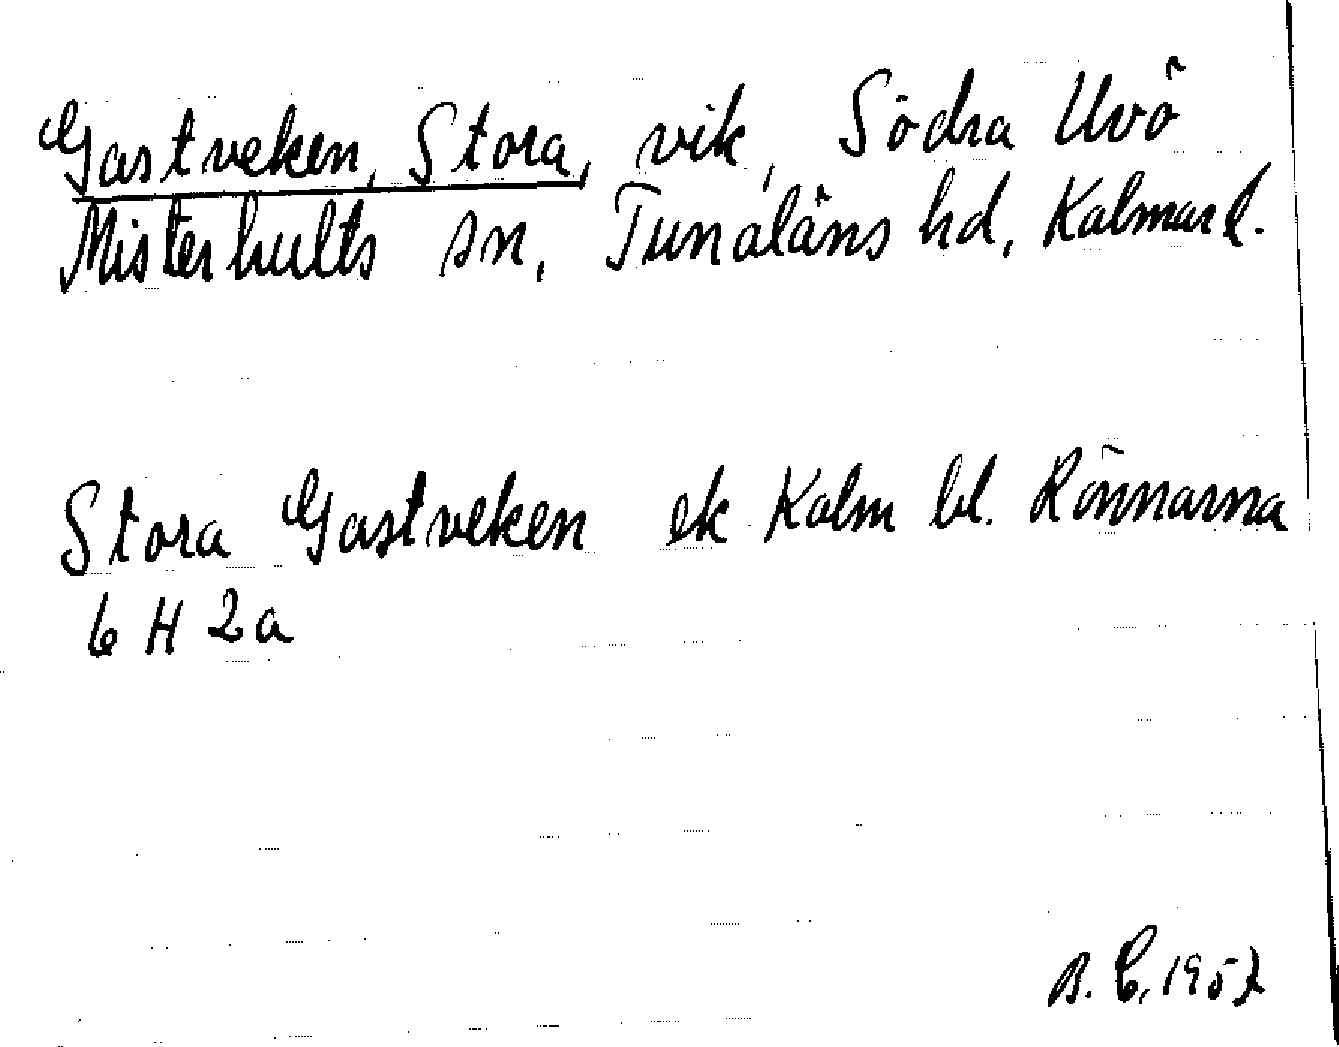 Gastveken, Stora, vik, Södra Uvö
Misterhults sn, Tunaläns hd, Kalmar l.
Stora Gastveken ek Kalm bl. Rönnarna
6 H 2a
B. C. 1957